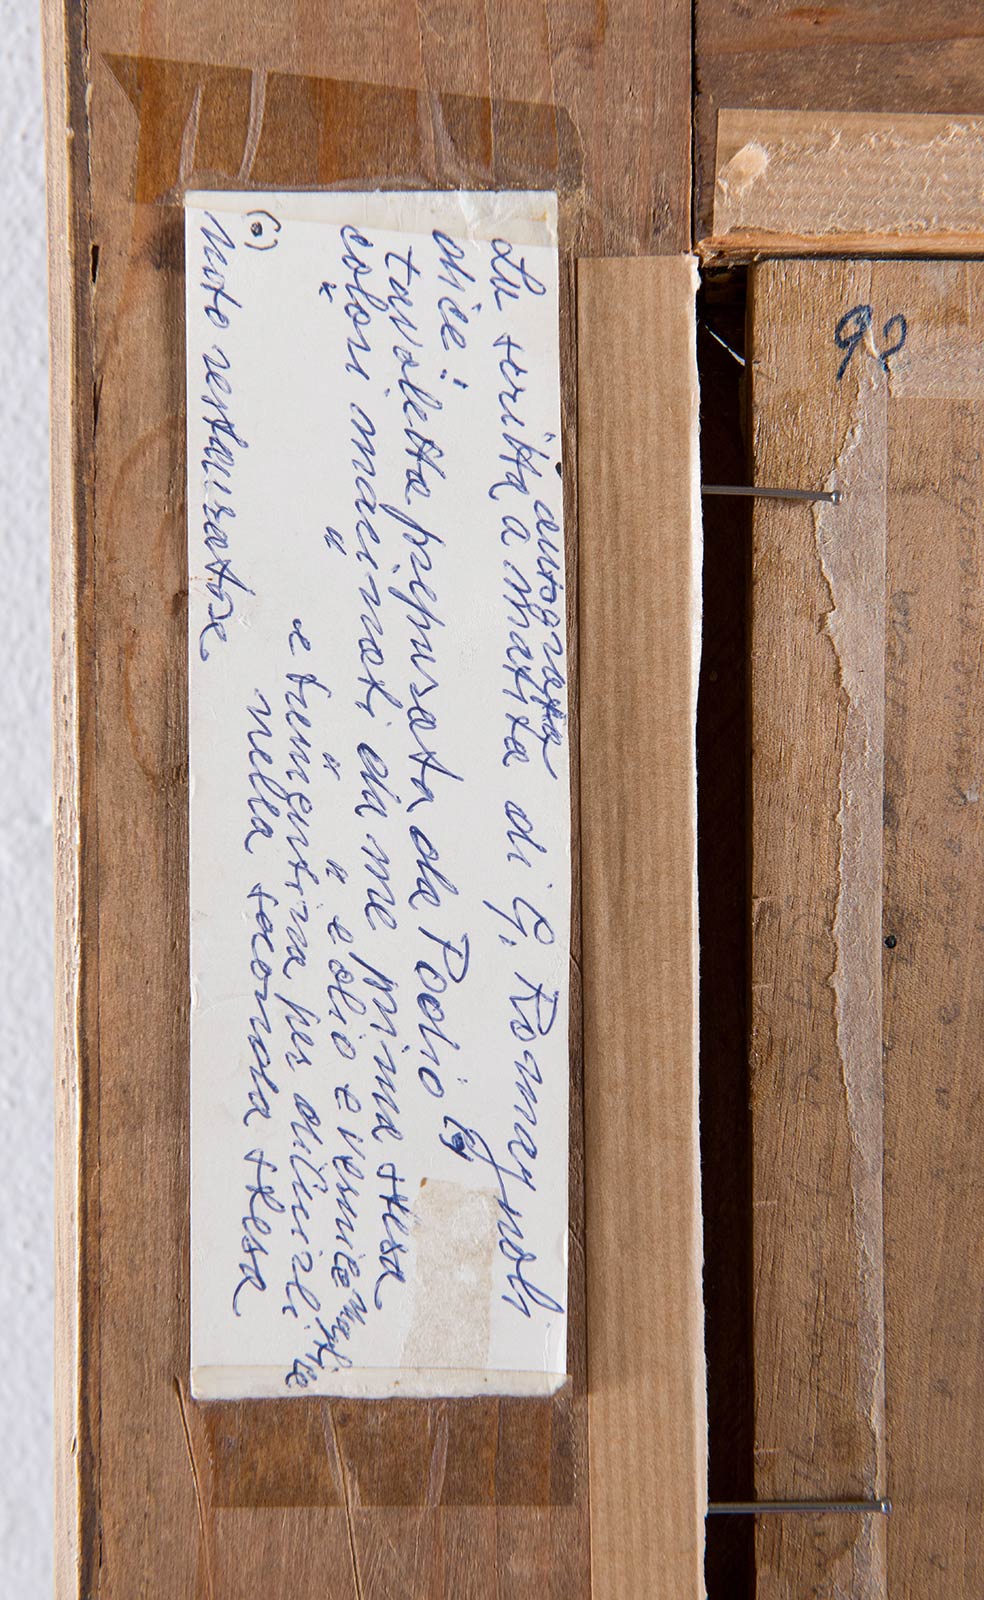 La scritta autografa a matita di G. Romagnoli
dice:
tavoletta preparata da Podio (*)
colori macinati da me prima stesa
" " " " e olio e vernice
e trementina per diluirli
nella seconda stesa
(*)
noto restauratore
92